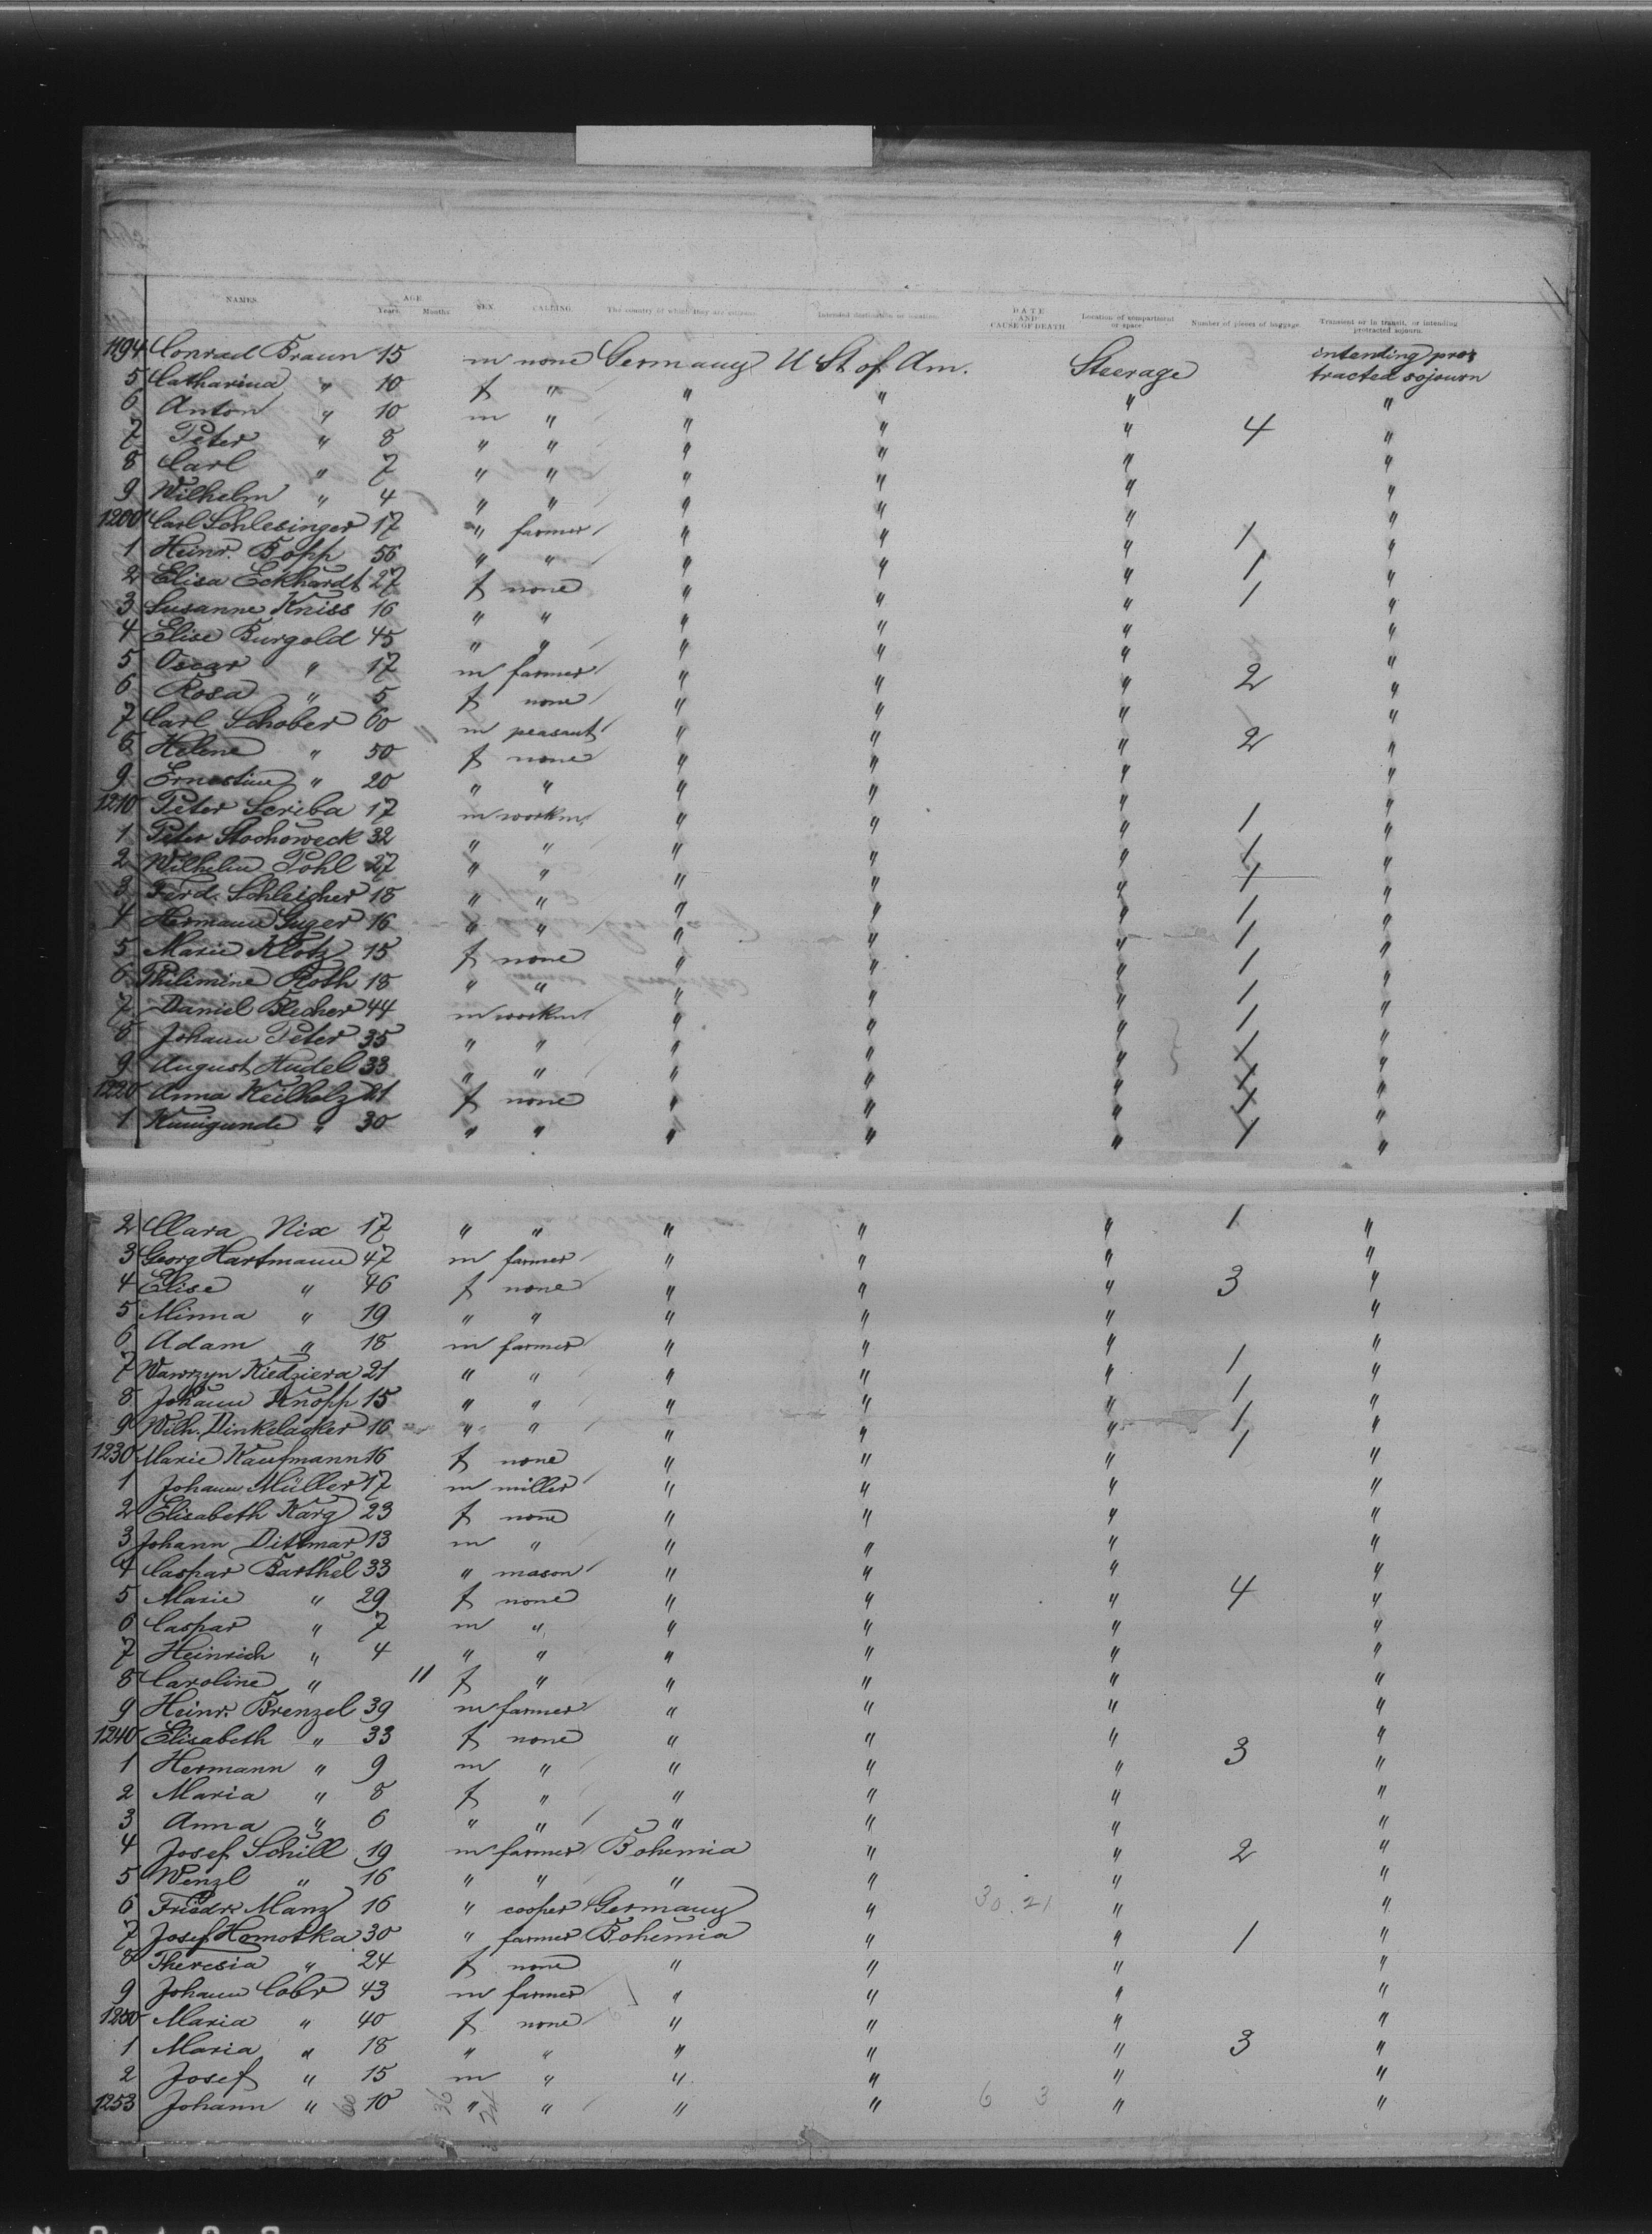 NAMES. AGE Years. Months SEX. CALLING. The country of which they are citizens. Intended destination or location. DATE AND CAUSE OF DEATH Location of compartment or space. Number of pieces of baggage. Transient or in transit, or intending protracted sojourn.
1194 Conrad Braun 15 m none Germany U St of Am. Steerage intending pro- tracted sojourn
5 Catharina " 10 f " " " " "
6 Anton " 10 m " " " " 4 "
7 Peter " 8 " " " " " "
8 Carl " 7 " " " " " "
9 Wilhelm " 4 " " " " " "
1200 Carl Schlesinger 17 " farmer " " " 1 "
1 Heinr. Bopp 56 " " " " " 1 "
2 Elisa Eckhardt 27 f none " " " 1 "
3 Susanne Kniss 16 " " " " " "
4 Elise Burgold 45 " " " " " "
5 Oscar " 17 m farmer " " " 2 "
6 Rosa " 5 f none " " " "
7 Carl Schober 60 m peasant " " " 2 "
8 Helene " 50 f none " " " "
9 Ernestine " 20 " " " " " "
1210 Peter Scriba 17 m workm. " " " 1 "
1 Peter Stochoweck 32 " " " " " 1 "
2 Wilhelm Pohl 27 " " " " " 1 "
3 Ferd. Schleicher 18 " " " " " 1 "
4 Hermann Guger 16 " " " " " 1 "
5 Marie Klotz 15 f none " " " 1 "
6 Philimine Roth 18 " " " " " 1 "
7 Daniel Blecher 44 m workm " " " 1 "
8 Johann Peter 35 " " " " " 1 "
9 August Hudel 33 " " " " " 1 "
1220 Anna Keilholz 21 f none " " " 1 "
1 Kunigunde " 30 " " " " " 1 "
2 Clara Nix 17 " " " " " 1 "
3 Georg Hartmann 47 m farmer " " " "
4 Elise " 46 f none " " " 3 "
5 Minna " 19 " " " " " "
6 Adam " 18 m farmer " " " "
7 Wawrzyn Kiedziera 21 " " " " " 1 "
8 Johann Knopp 15 " " " " " 1 "
9 Wilh. Dinkelacker 16 " " " " " 1 "
1230 Marie Kaufmann 16 f none " " " 1 "
1 Johann Müller 17 m miller " " " "
2 Elisabeth Karg 23 f none " " " "
3 Johann Dittmar 13 m " " " " "
4 Caspar Barthel 33 " mason " " " "
5 Marie " 29 f none " " " 4 "
6 Caspar " 7 m " " " " "
7 Heinrich " 4 " " " " " "
8 Caroline " 11 f " " " " "
9 Heinr. Brenzel 39 m farmer " " " "
1240 Elisabeth " 33 f none " " " "
1 Hermann " 9 m " " " " 3 "
2 Maria " 8 f " " " " "
3 Anna " 6 " " " " " "
4 Josef Schill 19 m farmer Bohemia " " 2 "
5 Wenzl " 16 " " " " " "
6 Friedr. Manz 16 " cooper Germany " 30.21 " "
7 Josef Homotka 30 " farmer Bohemia " " 1 "
8 Theresia " 24 f none " " " "
9 Johann Cobr 43 m farmer " " " "
1250 Maria " 40 f none " " " "
1 Maria " 18 " " " " " 3 "
2 Josef " 15 m " " " " "
1253 Johann " 10 " " " " 6 3 " "